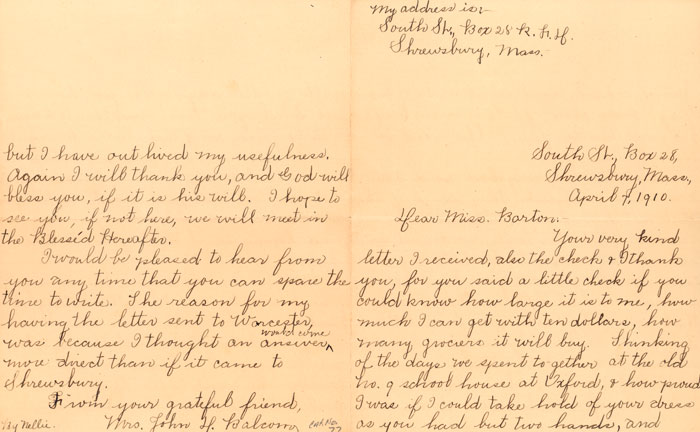 My address is:-
South St., Box 28 R. F. D.
Shrewsbury, Mass.
South St., Box 28,
Shrewsbury, Mass,
April 7, 1910.
Dear Miss. Barton:-
Your very kind
letter I received, also the check & I thank
you, for you said a little check if you
could know how large it is to me, how
much I can get with ten dollars, how
many grocers it will buy. Thinking
of the days we spent to gether at the old
no. 9 school house at Oxford, & how proud
I was if I could take hold of your dress
as you had but two hands, and
but I have out lived my usefulness.
Again I will thank you, and God will
bless you, if it is his will. I hope to
see you, if not here, we will meet in
the Blesséd Hereafter.
I would be pleased to hear from
you any time that you can spare the
time to write. The reason for my
having the letter sent to Worcester,
was because I thought an answer would come
more direct than if it came to
Shrewsbury.
From your grateful friend,
By Nellie. Mrs. John H. Balcom,